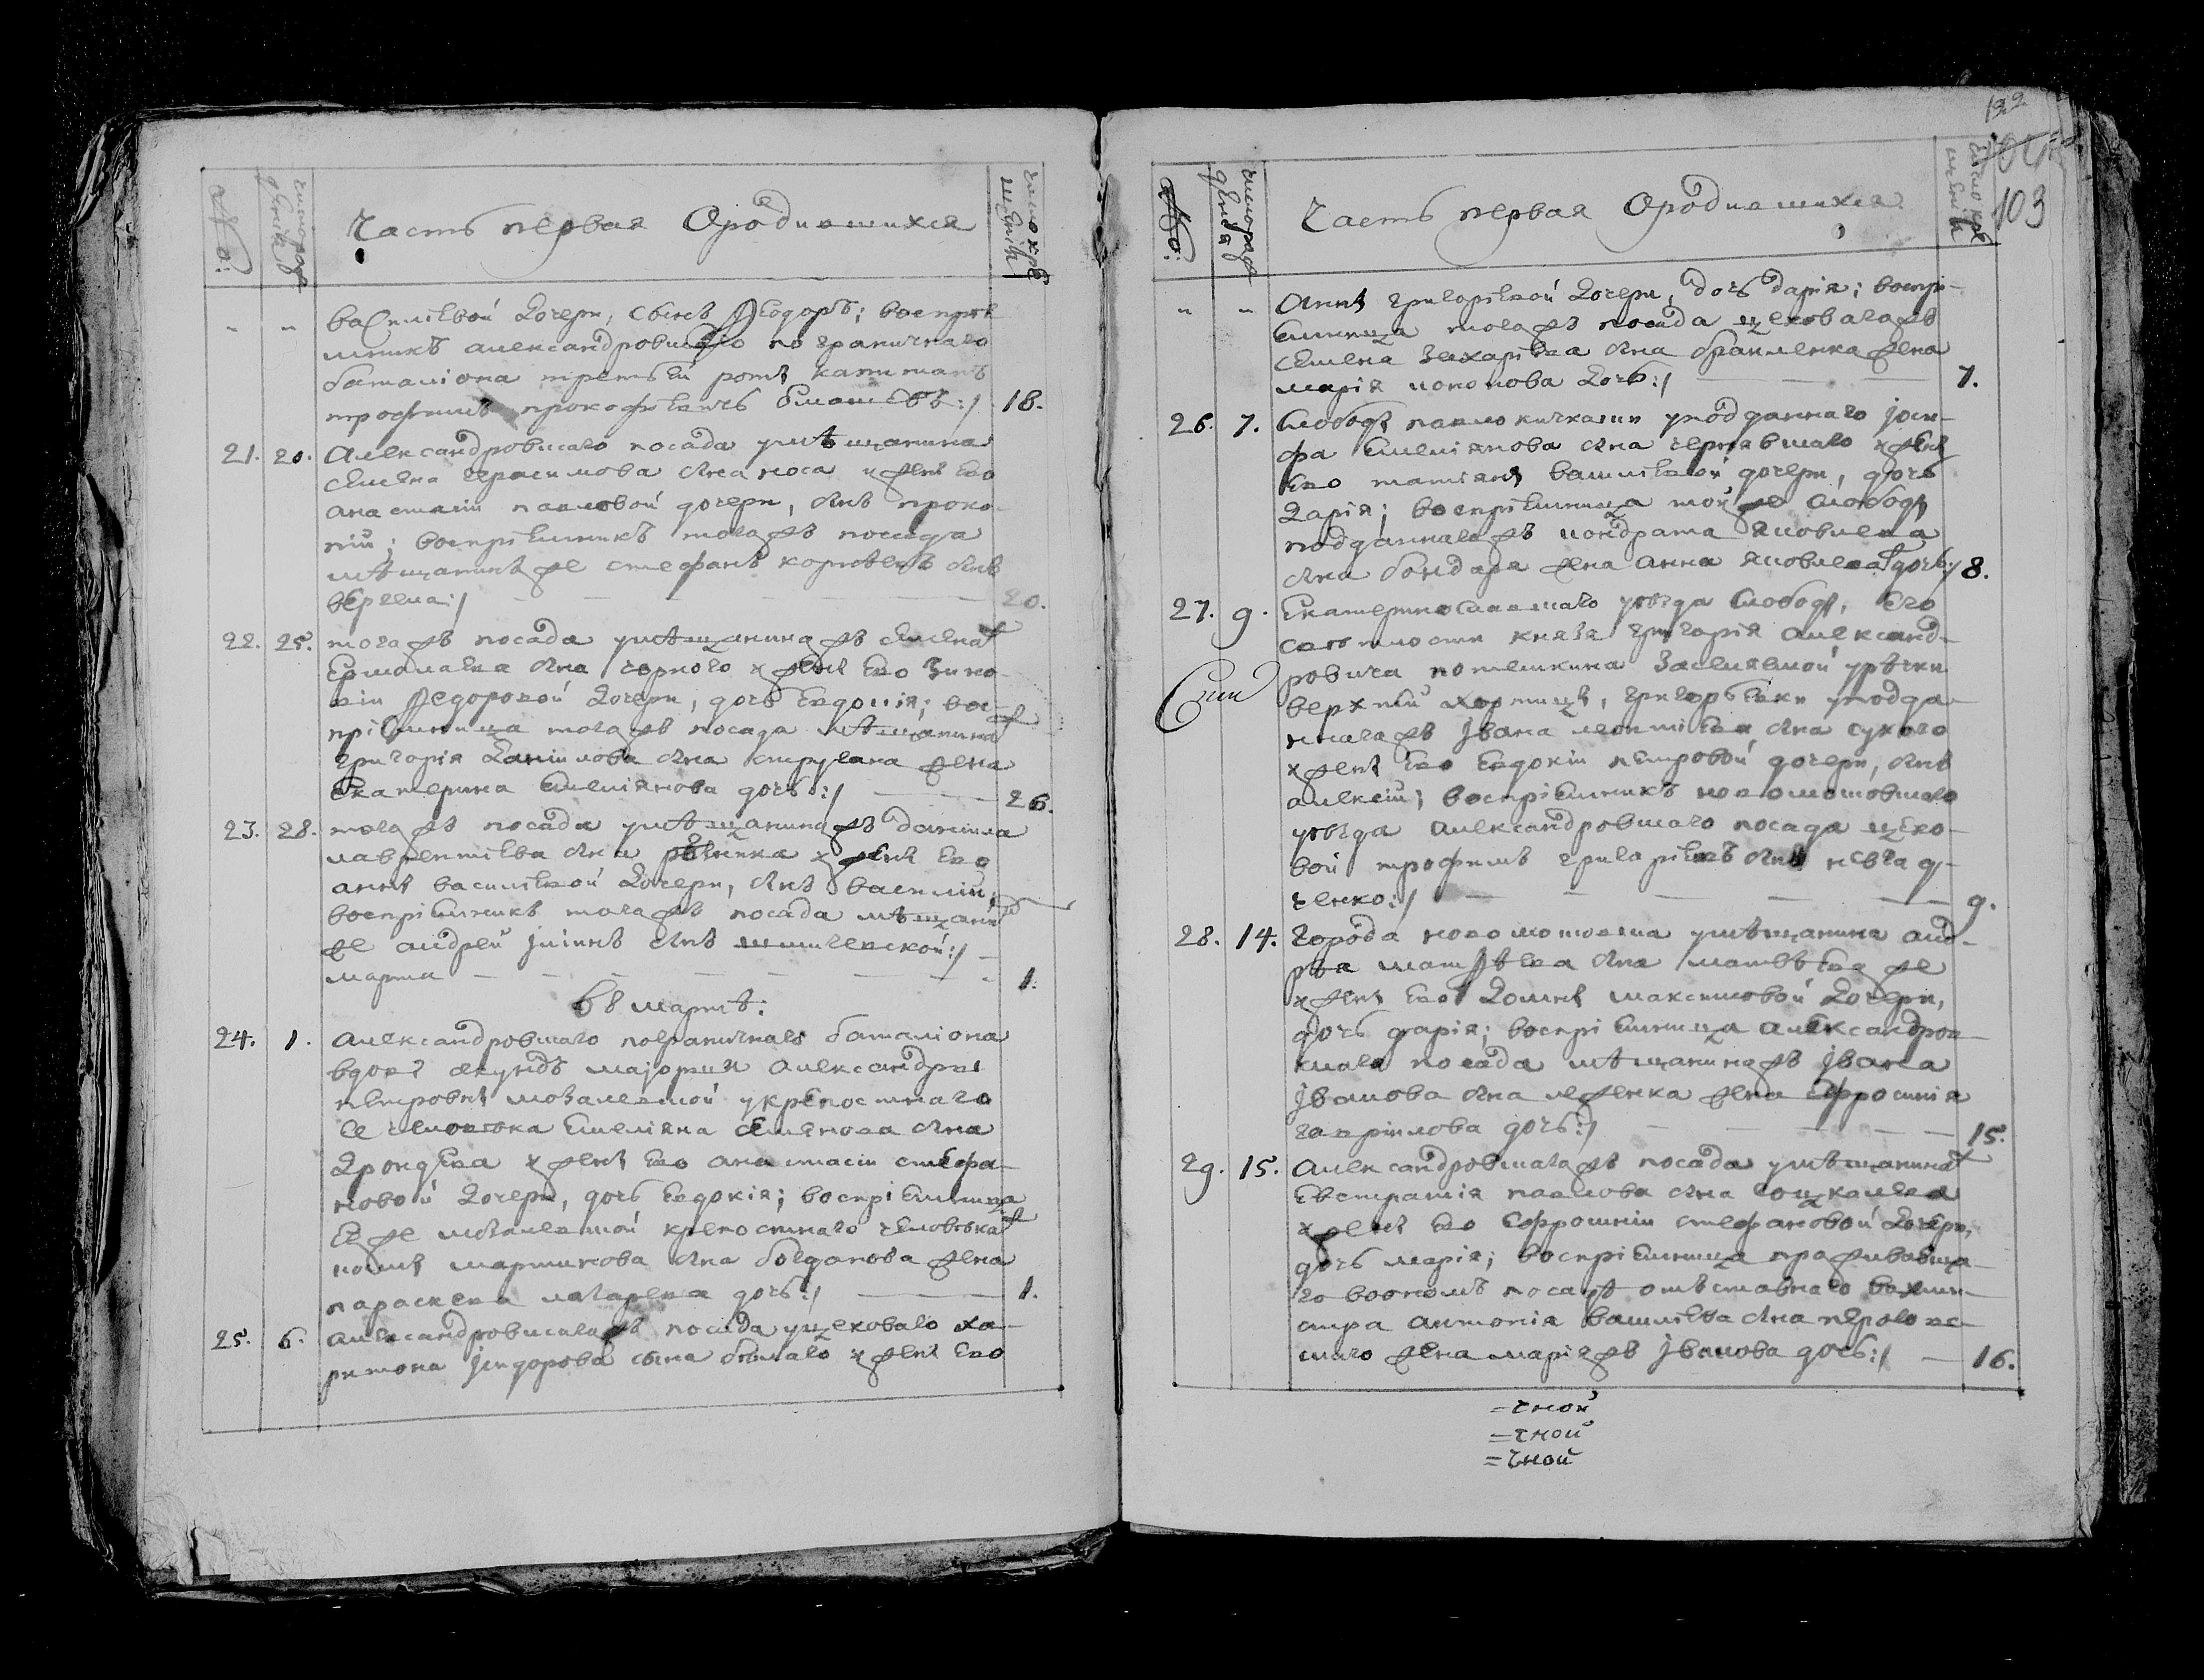 No:
число рож
денія
Часть первая Ородившихся
число кре
щенія
" " василіевой дочери, сынъ Ѳеодоръ; воспріе
мникъ александровскаго пограничнаго
баталіона третьей роты капитанъ
трофимъ прокофіевичъ :/ 18.
21. 20. Александровскаго посада у мѣщанина
семена герасимова сна носа и жены его
анастасіи павловой дочери, снъ проко-
пій; воспріемникъ тогожъ посада
мѣщанинъ же стефанъ корнѣевъ снъ
вергема:/ 20.
22. 25. тогожъ посада у мѣщанинажъ семена
ермолаева сна чорного и жены его зино-
віи Ѳедоровой дочери, дочь евдокія; вос-
пріемница тогожъ посада мѣщанина
григорія даніилова сна жена
екатерина емеліянова дочь:/ 26.
23. 28. тогожъ посада у мѣщанинажъ даніила
лаврентіева сна рѣзника и жены его
анны василіевой дочери, снъ василій;
воспріемникъ тогожъ посада мѣщанинъ
же андрей снъ :/
марта 1.
Въ мартѣ:
24. 1. Александровскаго пограничнаго баталіона
вдовы секундъ маіорши александры
петровны у крепостнаго
ее человѣка емеліяна семенова сна
и жены его анастасіи стефа-
новой дочери, дочь евдокія; воспріемница
ея же крепостнаго человѣка
мартинова сна богданова жена
параскева дочь:/ 1.
25. 6. александровскагожъ посада у цеховаго ха-
ритона сидорова сына и жены его
122
103
No:
число рож
денія
Часть первая Ородившихся
число кре
щенія
" " Анны григоріевой дочери, дочь дарія; воспрі-
емница тогожъ посада цеховагожъ
семена захаріева сна жена
марія дочь:/ 7.
26. 7. Слободы павло кичкаски у подданнаго іоси-
фа емеліянова сна чернявскаго и жены
его татіяны василіевой дочери, дочь
дарія; воспріемница той же слободы
подданнагожъ кондрата яковлева
сна бондаря жена анна яковлева дочь:/ 8.
27. 9. Екатеринославскаго уѣзда слободы, его
свѣтлости князя григорія александ-
ровича потемкина заселяемой у рѣчки
верхней хортицы, григорьевки у подда-
ннагожъ Івана леонтіева сна сухого
и жены его евдокіи петровой дочери, снъ
алексій; воспріемникъ новомосковскаго
уѣзда александровскаго посада цехо-
вой трофимъ григоріевъ снъ
ченко:/ 9.
28. 14. Города новомосковска у мѣщанина анд-
рѣя матѳѣева сна же
и жены его домны максимовой дочери,
дочь дарія; воспріемница александров-
скаго посада мѣщанинажъ Івана
Іванова сна жена ефросинія
гавріилова дочь:/ 15.
29. 15. Александровскагожъ посада у мѣщанина
евстратія павлова сна
и жены его ефросиніи стефановой дочери,
дочь марія; воспріемница проживающа-
го въ ономъ посадѣ отъставнаго вахми-
стра антонія василіева сна
скаго жена маріяжъ Іванова дочь:/ 16.
=чной
=чной
=чной